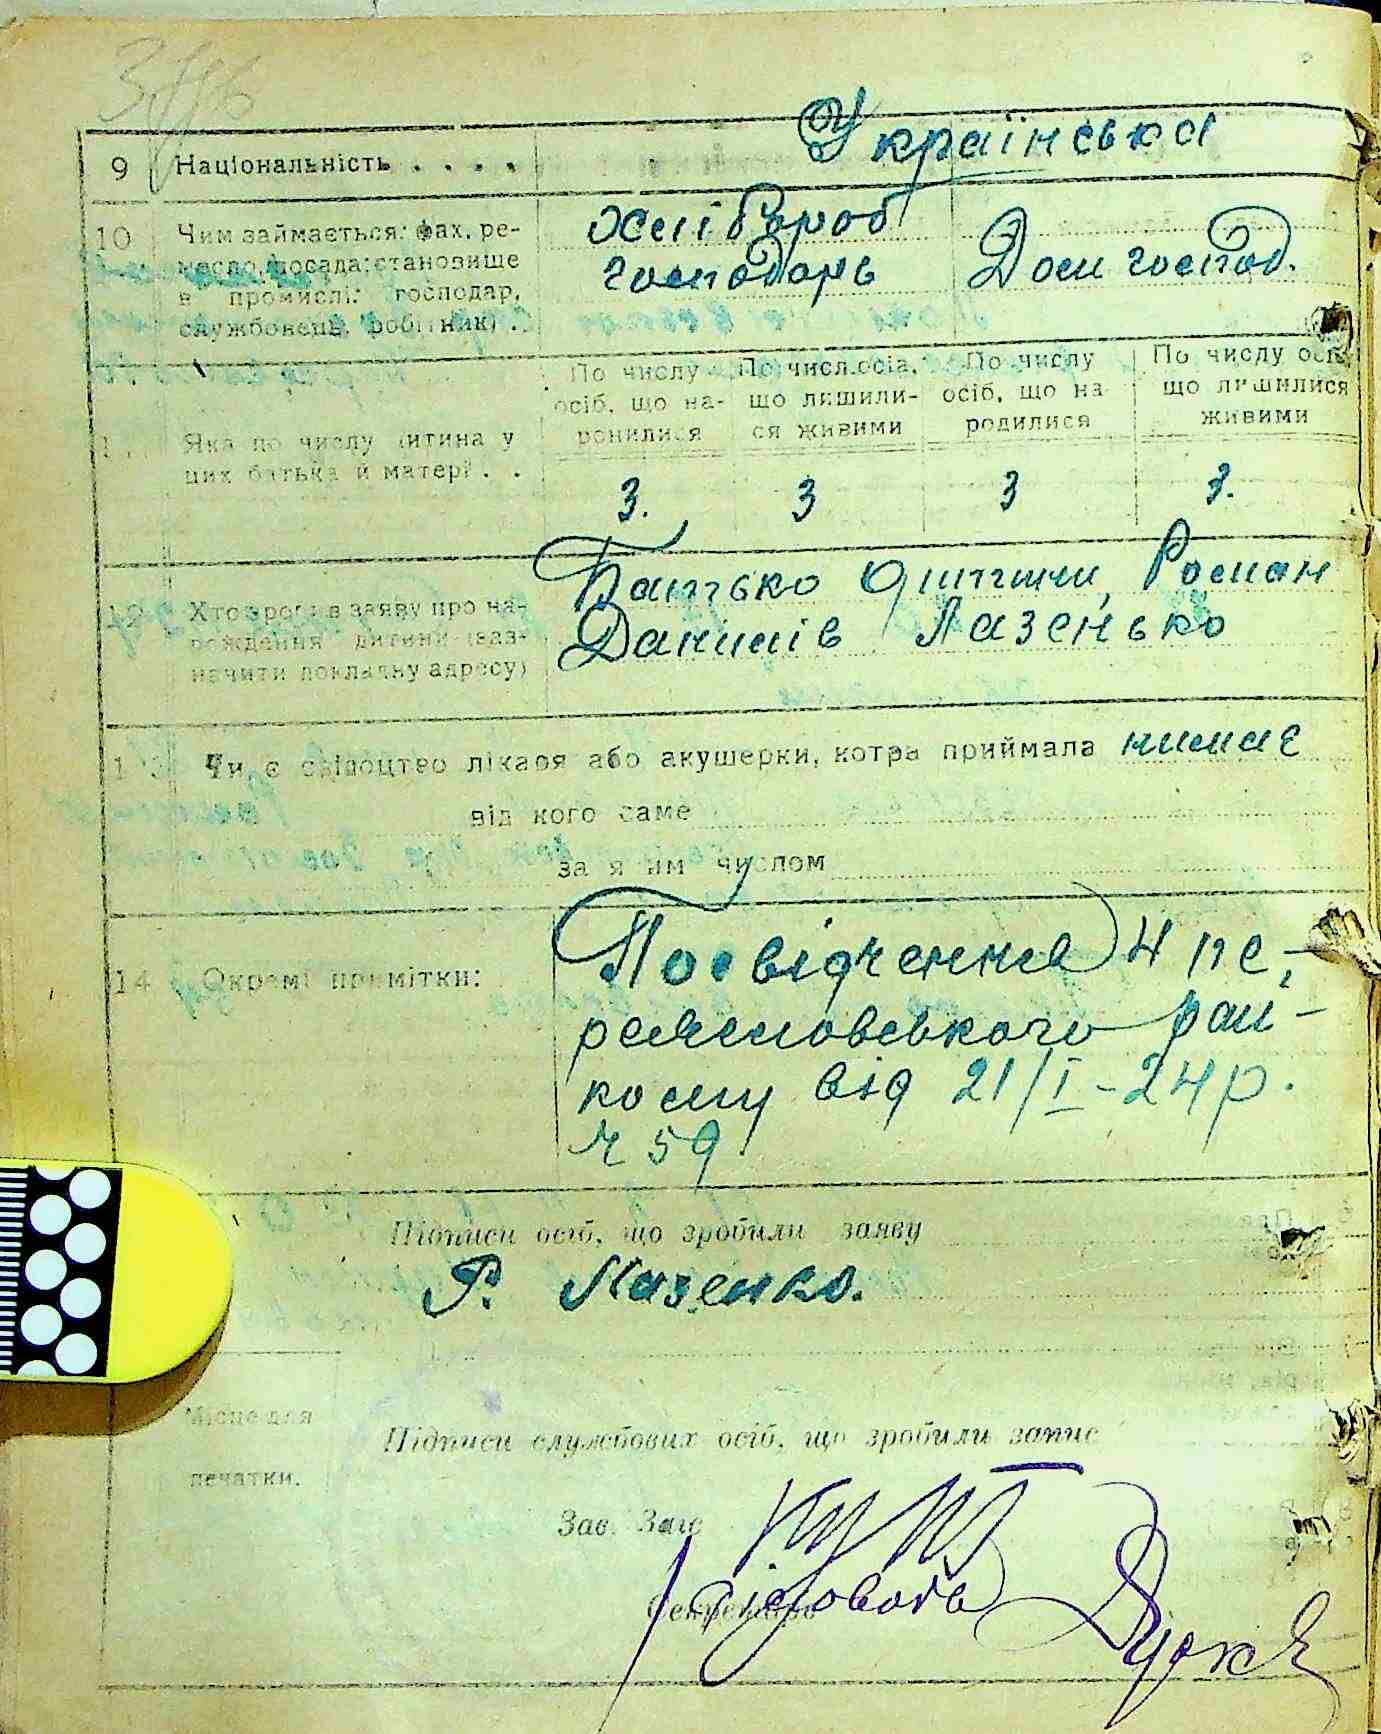 Українська
9 Національність . . . .
10 Чим займається: фах, ре-
месло, посада; становище
в промислі: господар,
службовець, робітник) . .
Хлібороб
господарь
Дом господ.
По числу осіб, що на-
родилися
По числ. осіб, що лишили-
ся живими
По числу осіб, що на-
родилися
По числу осіб, що лишилися
живими
Яка по числу дитина у
цих батька й матері . .
3. 3 3 3.
12 Хто зробив заяву про на-
рождення дитини (заз-
начити докладну адресу)
Батько дитини, Роман
Данилів Лазенько
13 Чи є свідоцтво лікаря або акушерки, котра приймала нимає
від кого саме
за яким числом
14 Окремі примітки:
Посвідчення Ч пе-
ковського рай-
кому від 21/I-24р.
Ч 59
Підписи осіб, що зробили заяву
Р. Лазенко.
Місце для
печатки.
Підписи службових осіб, що зробили запис
Зав. Загс
Секретарь